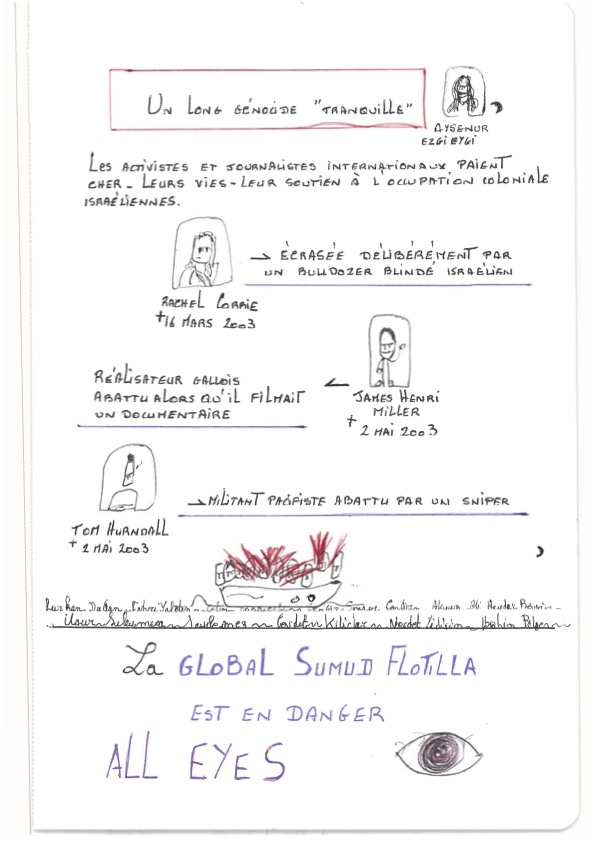 UN LONG GÉNOCIDE "TRANQUILLE"
AYSENUR
EZGI EYGI
LES ACTIVISTES ET JOURNALISTES INTERNATIONAUX PAIENT
CHER - LEURS VIES - LEUR SOUTIEN À L'OCCUPATION COLONIALE
ISRAÉLIENNES.
→ ÉCRASÉE DÉLIBÉRÉMENT PAR
UN BULLDOZER BLINDÉ ISRAÉLIEN
RACHEL CORRIE
+ 16 MARS 2003
RÉALISATEUR GALLOIS
ABATTU ALORS QU'IL FILMAIT
UN DOCUMENTAIRE
JAMES HENRI
MILLER
+ 2 MAI 2003
→ MILITANT PACIFISTE ABATTU PAR UN SNIPER
TOM HURNDALL
+ 2 MAI 2003
La GLOBAL SUMUD FLOTILLA
EST EN DANGER
ALL EYES